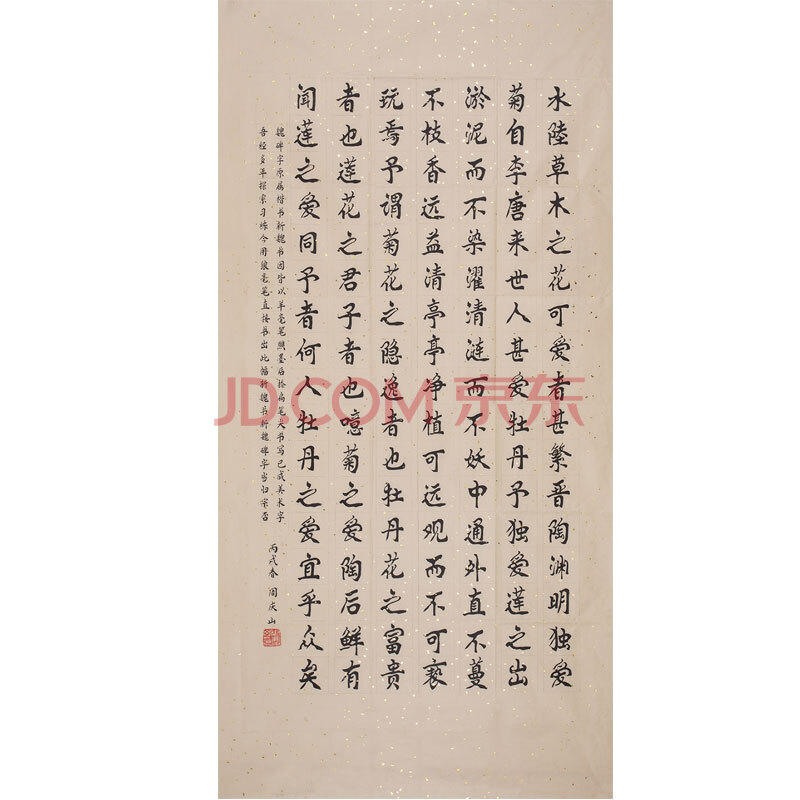 水陸草木之花可爱者甚繁晋陶渊明独爱
菊自李唐来世人甚爱牡丹予独爱莲之出
淤泥而不染濯清涟而不妖中通外直不蔓
不枝香远益清亭亭净植可远观而不可亵
玩焉予谓菊花之隐逸者也牡丹花之富贵
者也莲花之君子者也噫菊之爱陶后鲜有
闻莲之爱同予者何人牡丹之爱宜乎众矣
魏碑字原属楷书新魏书因皆以羊毫笔墨后捻扁笔尖书写已成美术字
吾经多年探索习练今用狼毫笔直接书出此幅新魏书新魏碑字当归宗否
丙戌春 阎庆山
JD.COM 京东